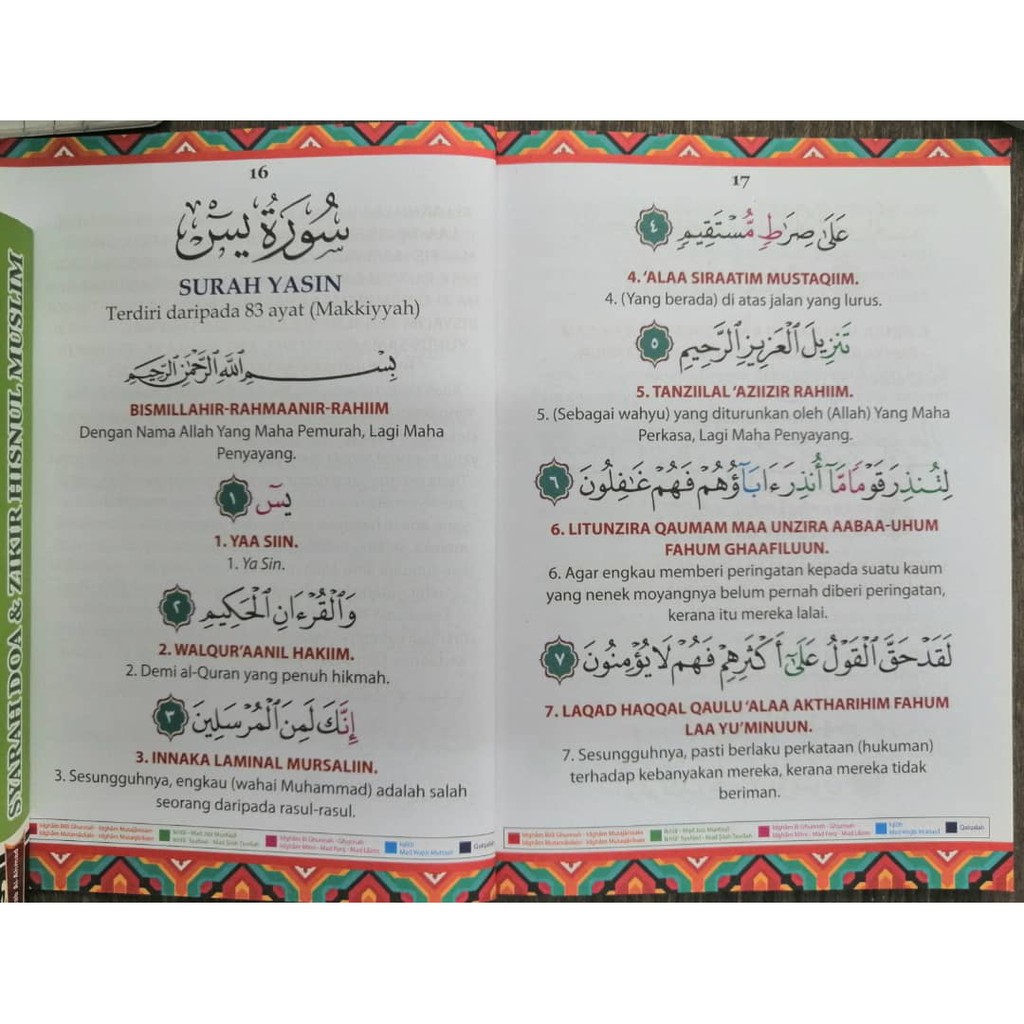 SYARAH DOA & ZIKIR HISNUL MUSLIM
16
سُورَةُ يسٓ
SURAH YASIN
Terdiri daripada 83 ayat (Makkiyyah)
بِسْمِ اللَّهِ الرَّحْمَٰنِ الرَّحِيمِ
BISMILLAHIR-RAHMAANIR-RAHIIM
Dengan Nama Allah Yang Maha Pemurah, Lagi Maha
Penyayang.
يسٓ ١
1. YAA SIIN.
1. Ya Sin.
وَالْقُرْءَانِ الْحَكِيمِ ٢
2. WALQUR'AANIL HAKIIM.
2. Demi al-Quran yang penuh hikmah.
إِنَّكَ لَمِنَ الْمُرْسَلِينَ ٣
3. INNAKA LAMINAL MURSALIIN.
3. Sesungguhnya, engkau (wahai Muhammad) adalah salah
seorang daripada rasul-rasul.
17
عَلَىٰ صِرَٰطٍ مُّسْتَقِيمٍ ٤
4. 'ALAA SIRAATIM MUSTAQIIM.
4. (Yang berada) di atas jalan yang lurus.
تَنزِيلَ الْعَزِيزِ الرَّحِيمِ ٥
5. TANZIILAL 'AZIIZIR RAHIIM.
5. (Sebagai wahyu) yang diturunkan oleh (Allah) Yang Maha
Perkasa, Lagi Maha Penyayang.
لِتُنذِرَ قَوْمًا مَّآ أُنذِرَ ءَابَآؤُهُمْ فَهُمْ غَٰفِلُونَ ٦
6. LITUNZIRA QAUMAM MAA UNZIRA AABAA-UHUM
FAHUM GHAAFILUUN.
6. Agar engkau memberi peringatan kepada suatu kaum
yang nenek moyangnya belum pernah diberi peringatan,
kerana itu mereka lalai.
لَقَدْ حَقَّ الْقَوْلُ عَلَىٰٓ أَكْثَرِهِمْ فَهُمْ لَا يُؤْمِنُونَ ٧
7. LAQAD HAQQAL QAULU 'ALAA AKTHARIHIM FAHUM
LAA YU'MINUUN.
7. Sesungguhnya, pasti berlaku perkataan (hukuman)
terhadap kebanyakan mereka, kerana mereka tidak
beriman.
Qalqalah